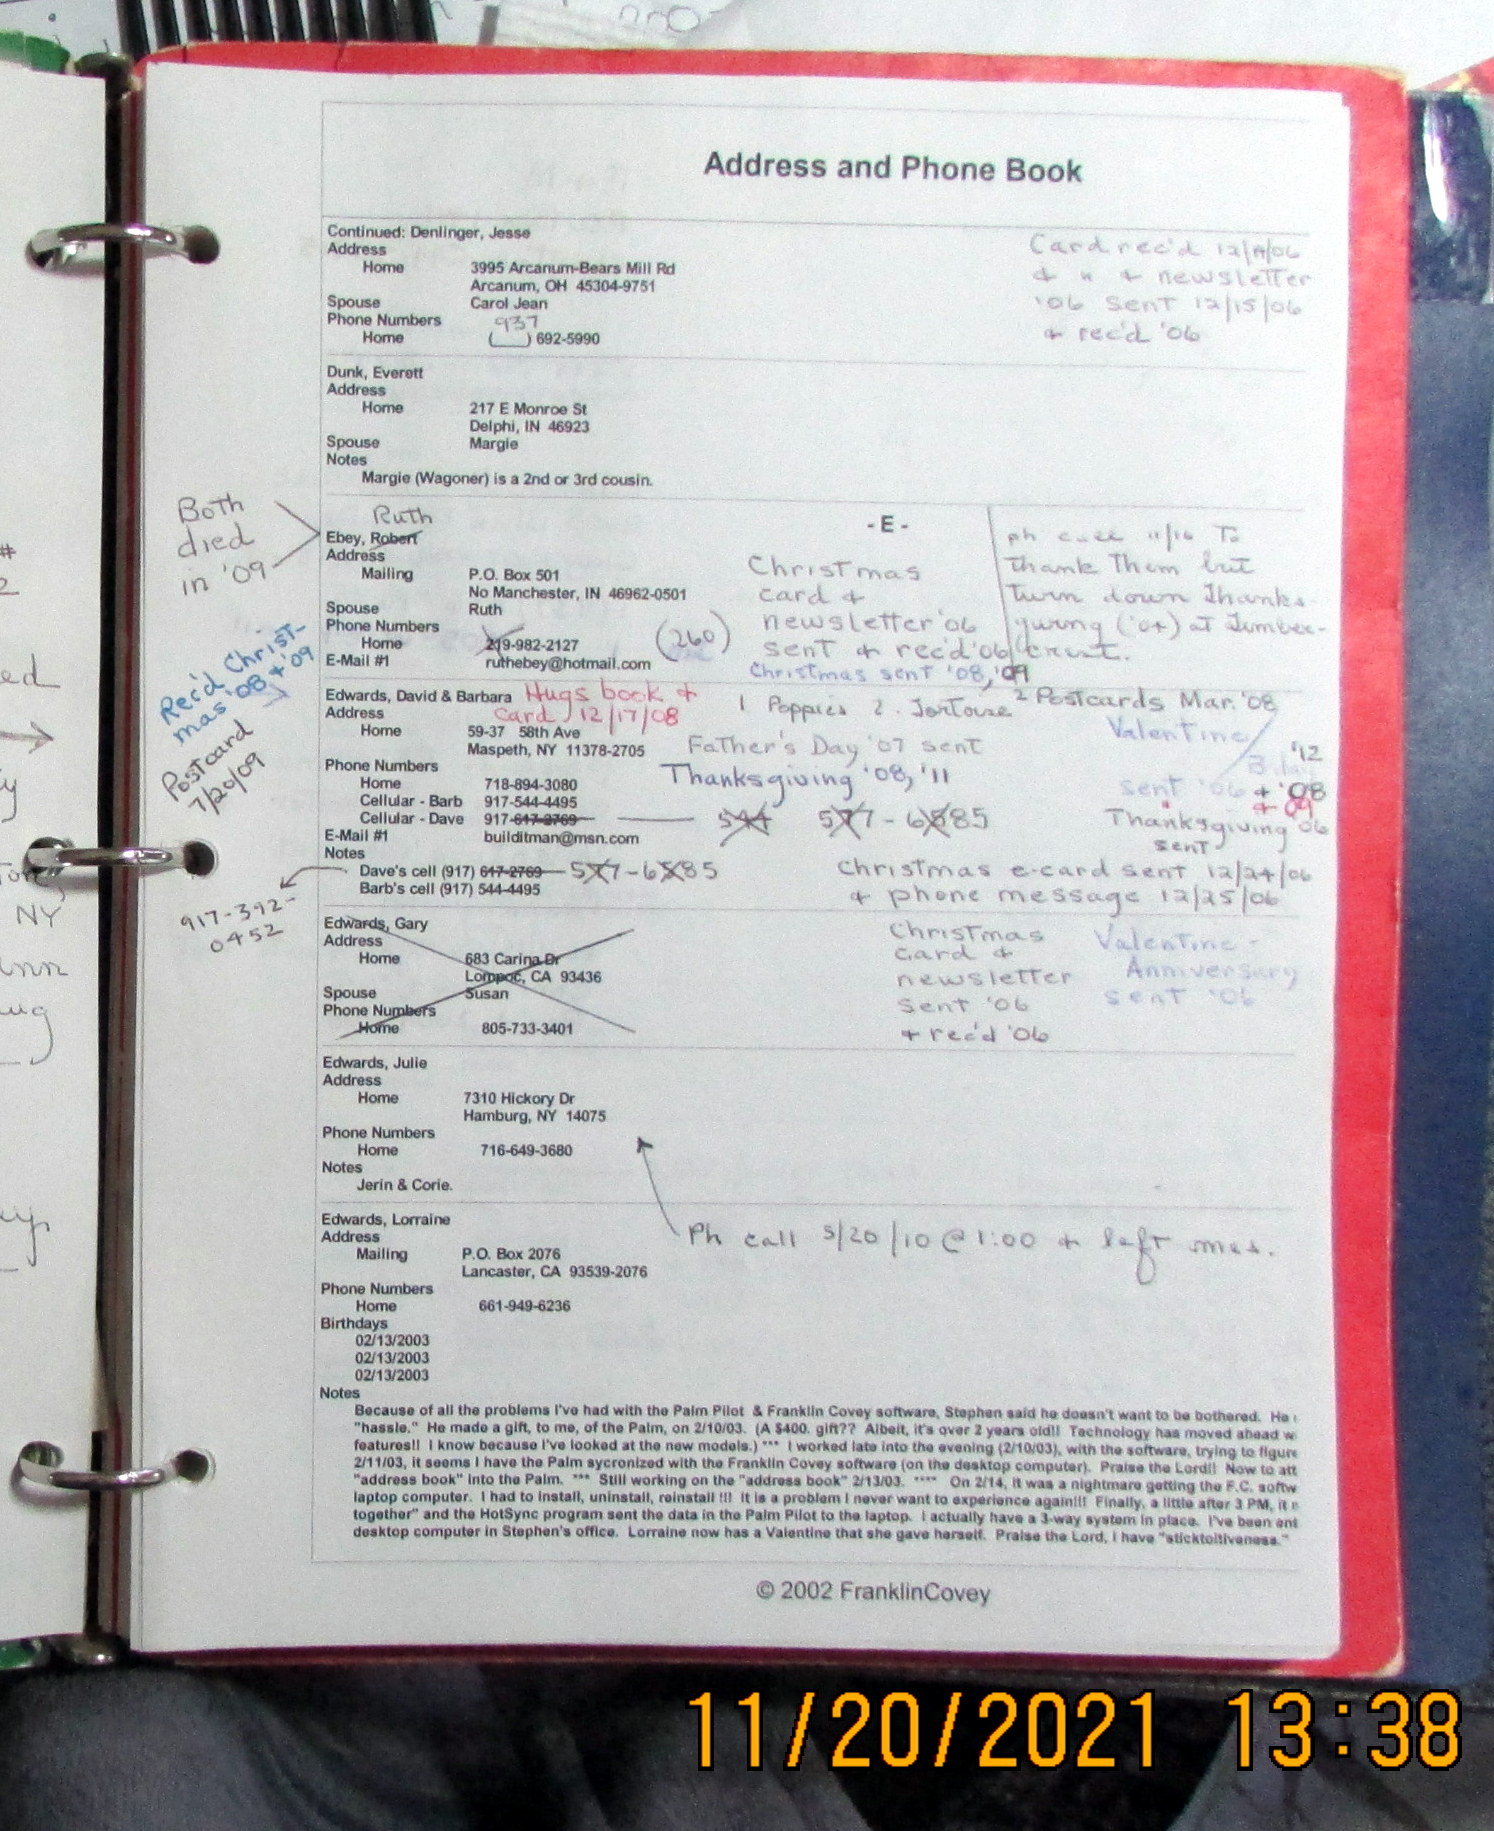 Address and Phone Book
Continued: Denlinger, Jesse
Address
Home 3995 Arcanum-Bears Mill Rd
Arcanum, OH 45304-9751
Spouse Carol Jean
Phone Numbers 937
Home ( ) 692-5990
Card rec'd 12/ /06
& " & newsletter
'06 sent 12/15/06
& rec'd '06
Dunk, Everett
Address
Home 217 E Monroe St
Delphi, IN 46923
Spouse Margie
Notes
Margie (Wagoner) is a 2nd or 3rd cousin.
- E -
Both
died
in '09
Ruth
Ebey, Robert
Address
Mailing P.O. Box 501
No Manchester, IN 46962-0501
Spouse Ruth
Phone Numbers
Home 219-982-2127 (260)
E-Mail #1 ruthebey@hotmail.com
Christmas
card &
newsletter '06
sent & rec'd '06
Christmas sent '08, '09
ph call 11/16 To
thank Them but
turn down Thanks-
giving ('04) at Timber-
crest.
Rec'd Christ-
mas '08 & '09
Postcard
7/20/09
Edwards, David & Barbara Hugs book &
card 12/17/08
Address
Home 59-37 58th Ave
Maspeth, NY 11378-2705
Phone Numbers
Home 718-894-3080
Cellular - Barb 917-544-4495
Cellular - Dave 917-617-2769 544 577-6585
E-Mail #1 builditman@msn.com
Notes
Dave's cell (917) 617-2769 577-6585
Barb's cell (917) 544-4495
917-392-
0452
1 Poppies 2. Tortoise 2 Postcards Mar. '08
Father's Day '07 sent
Thanksgiving '08, '11
Valentine
'12
sent '06 & '08
& 09
Thanksgiving '06
sent
Christmas e-card sent 12/24/06
& phone message 12/25/06
Edwards, Gary
Address
Home 683 Carina Dr
Lompoc, CA 93436
Spouse Susan
Phone Numbers
Home 805-733-3401
Christmas
card &
newsletter
sent '06
& rec'd '06
Valentine -
Anniversary
sent '06
Edwards, Julie
Address
Home 7310 Hickory Dr
Hamburg, NY 14075
Phone Numbers
Home 716-649-3680
Notes
Jerin & Corie.
Ph call 5/20/10 @ 1:00 & left mes.
Edwards, Lorraine
Address
Mailing P.O. Box 2076
Lancaster, CA 93539-2076
Phone Numbers
Home 661-949-6236
Birthdays
02/13/2003
02/13/2003
02/13/2003
Notes
Because of all the problems I've had with the Palm Pilot & Franklin Covey software, Stephen said he doesn't want to be bothered. He
"hassle." He made a gift, to me, of the Palm, on 2/10/03. (A $400. gift?? Albeit, it's over 2 years old!! Technology has moved ahead w
features!! I know because I've looked at the new models.) *** I worked late into the evening (2/10/03), with the software, trying to figure
2/11/03, it seems I have the Palm sycronized with the Franklin Covey software (on the desktop computer). Praise the Lord!! Now to att
"address book" into the Palm. *** Still working on the "address book" 2/13/03. **** On 2/14, it was a nightmare getting the F.C. softw
laptop computer. I had to install, uninstall, reinstall !!! It is a problem I never want to experience again!!! Finally, a little after 3 PM, it
together" and the HotSync program sent the data in the Palm Pilot to the laptop. I actually have a 3-way system in place. I've been ent
desktop computer in Stephen's office. Lorraine now has a Valentine that she gave herself. Praise the Lord, I have "sticktoitiveness."
© 2002 FranklinCovey
#
2
ed
y
NY
ug
11/20/2021 13:38